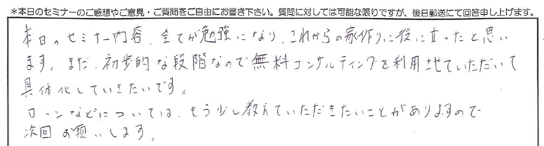 *本日のセミナーのご感想やご意見・ご質問をご自由にお書き下さい。質問に対しては可能な限りですが、後日郵送にて回答申し上げます。
本日のセミナー内容、全てが勉強になり、これからの家作りに役に立ったと思い
ます。まだ、初歩的な段階なので無料コンサルティングを利用させていただいて
具体化していきたいです。
ローンなどについては、もう少し教えていただきたいことがありますので
次回お願いします。